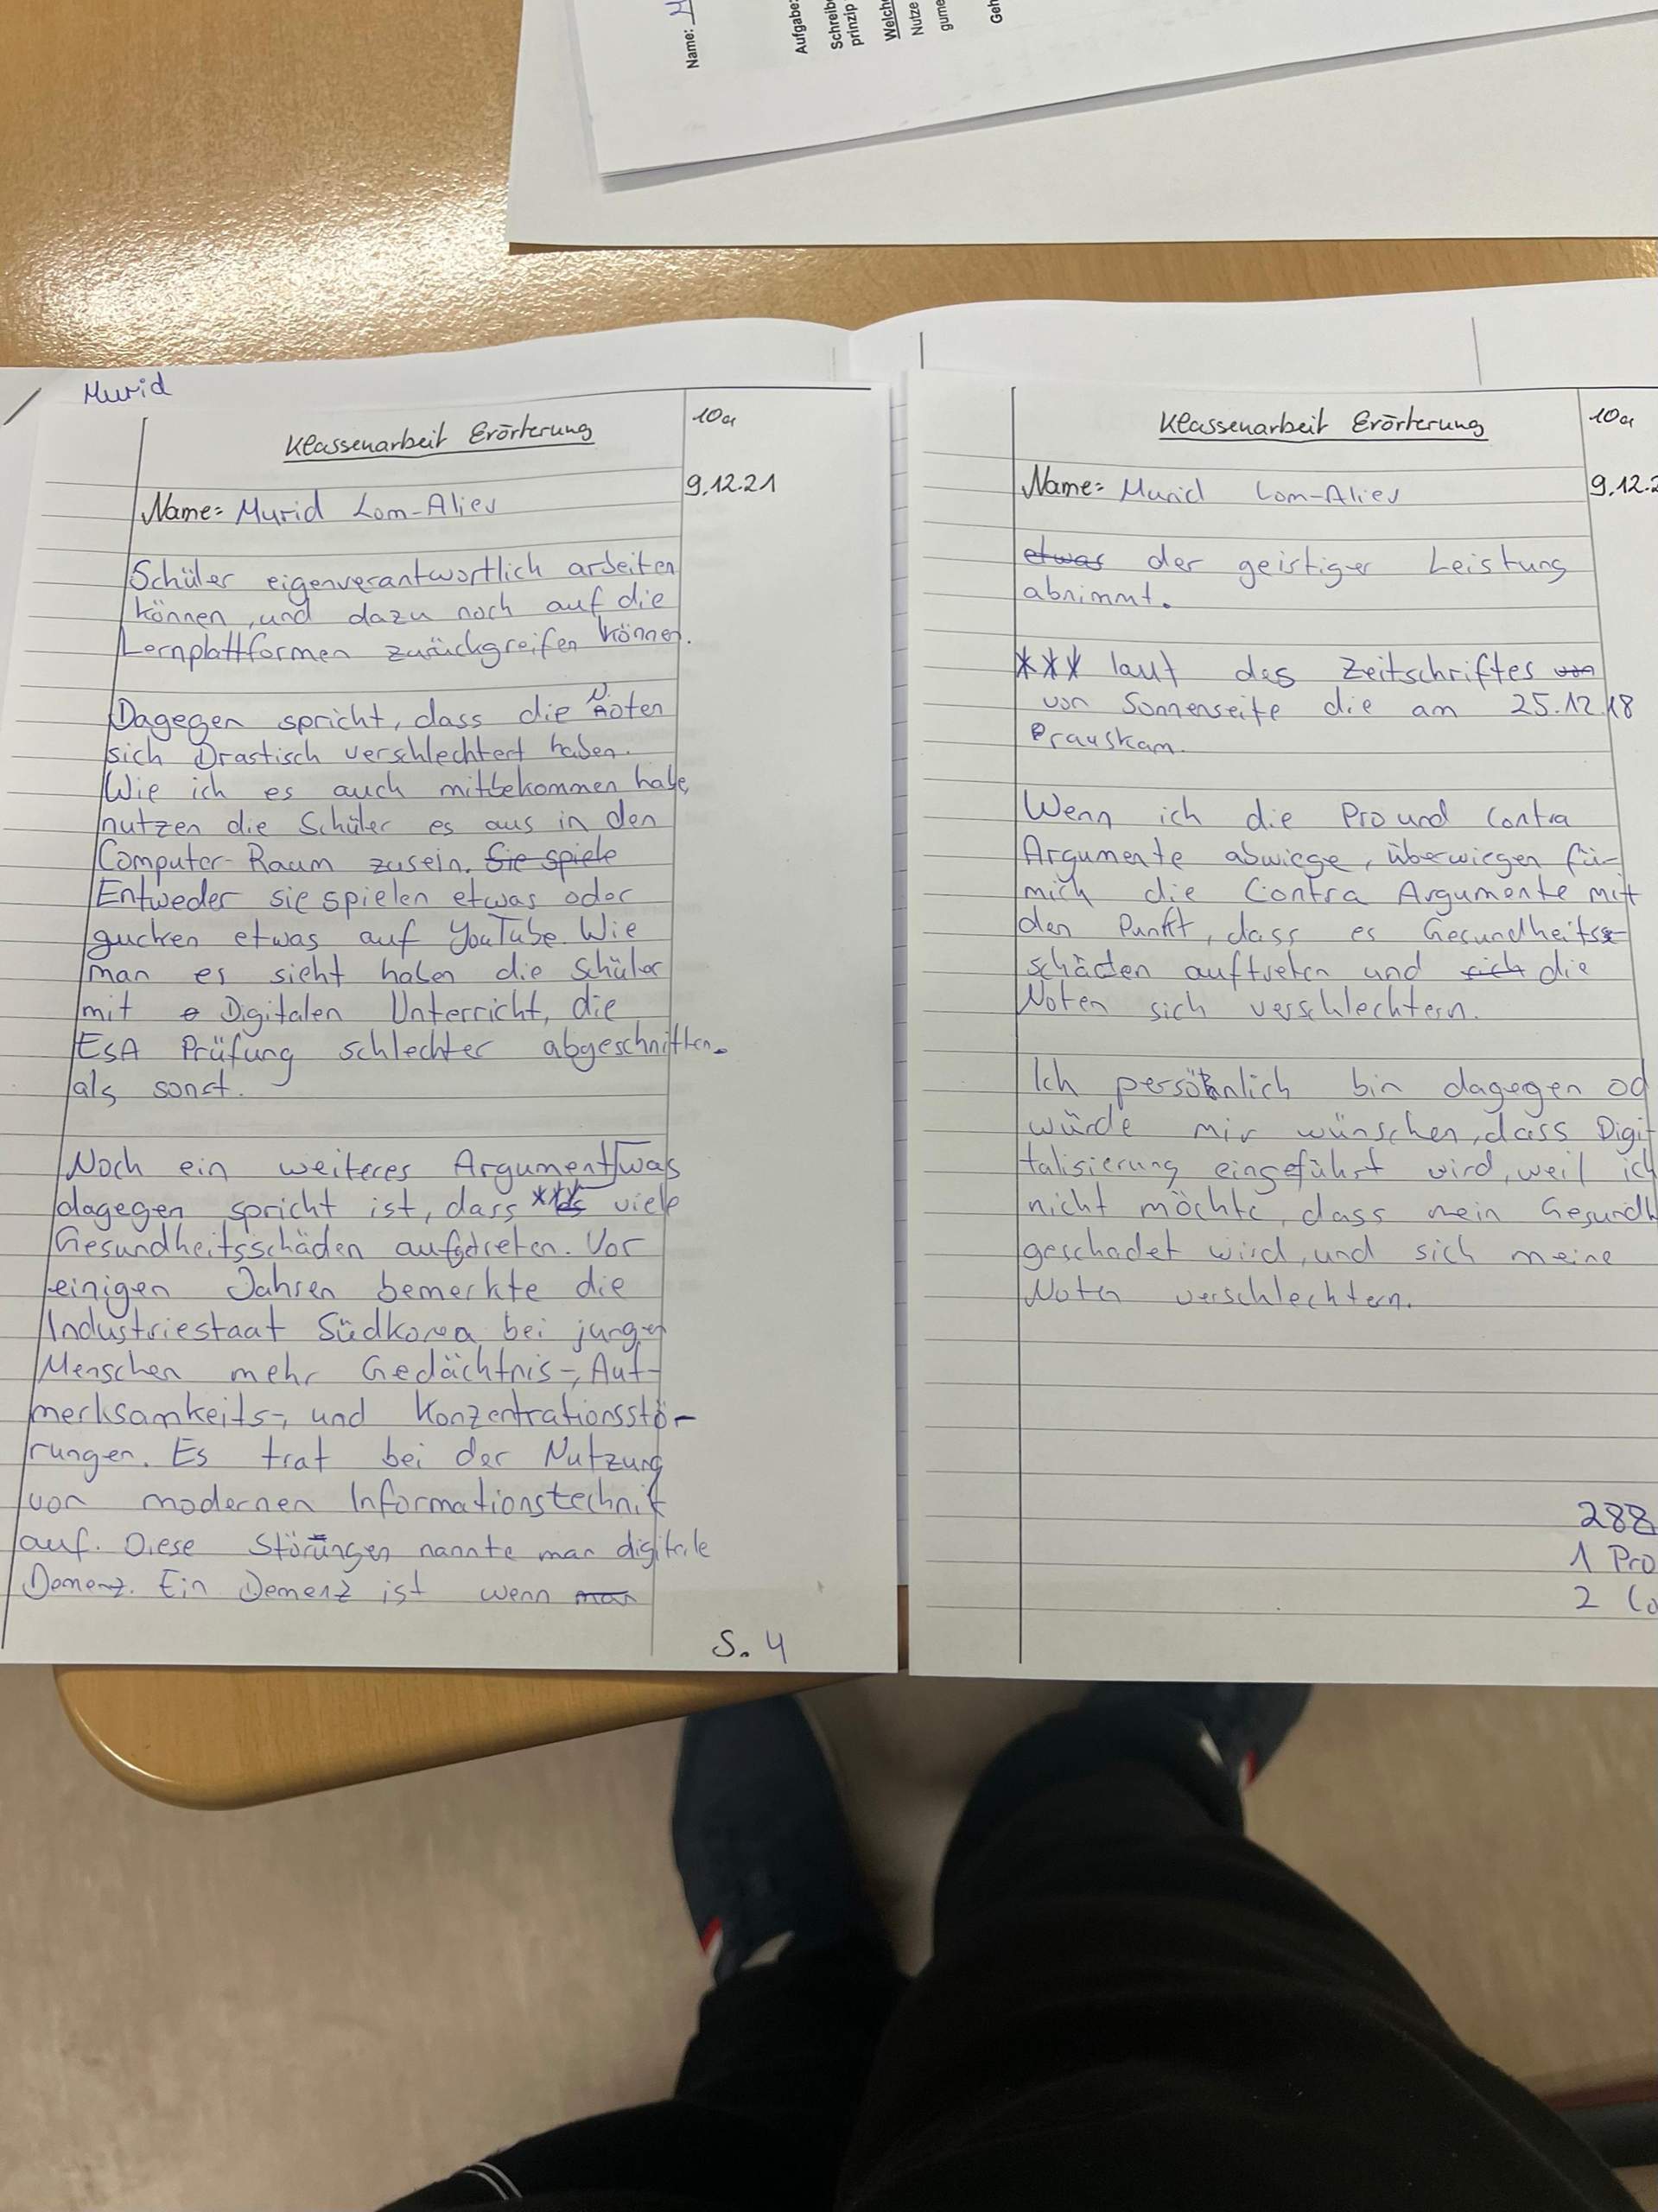 Name:
Aufgabe:
prinzip
Nutze
Murid
Klassenarbeit Erörterung
10a
9.12.21
Name: Murid Lom-Aliev
Schüler eigenverantwortlich arbeiten
können, und dazu noch auf die
Lernplattformen zurückgreifen können.
Dagegen spricht, dass die Noten
sich Drastisch verschlechtert haben.
Wie ich es auch mitbekommen habe,
nutzen die Schüler es aus in den
Computer-Raum zusein. Sie spiele
Entweder sie spielen etwas oder
gucken etwas auf YouTube. Wie
man es sieht haben die Schüler
mit Digitalen Unterricht, die
ESA Prüfung schlechter abgeschnitten
als sonst.
Noch ein weiteres Argument, was
dagegen spricht ist, dass *** viele
Gesundheitsschäden aufgetreten. Vor
einigen Jahren bemerkte die
Industriestaat Südkorea bei jungen
Menschen mehr Gedächtnis-, Auf-
merksamkeits-, und Konzentrationsstö-
rungen. Es trat bei der Nutzung
von modernen Informationstechnik
auf. Diese Störungen nannte man digitale
Demenz. Ein Demenz ist wenn man
S. 4
Klassenarbeit Erörterung
10a
9.12.2
Name: Murid Lom-Aliev
etwas der geistiger Leistung
abnimmt.
*** laut des Zeitschriftes von
von Sonnenseite die am 25.12.18
rauskam.
Wenn ich die Pro und Contra
Argumente abwiege, überwiegen für
mich die Contra Argumente mit
den Punkt, dass es Gesundheits-
schäden auftreten und sich die
Noten sich verschlechtern.
Ich persönlich bin dagegen od
würde mir wünschen, dass Digi
talisierung eingeführt wird, weil ich
nicht möchte, dass mein Gesundh
geschadet wird, und sich meine
Noten verschlechtern.
288
1 Pro
2 Co